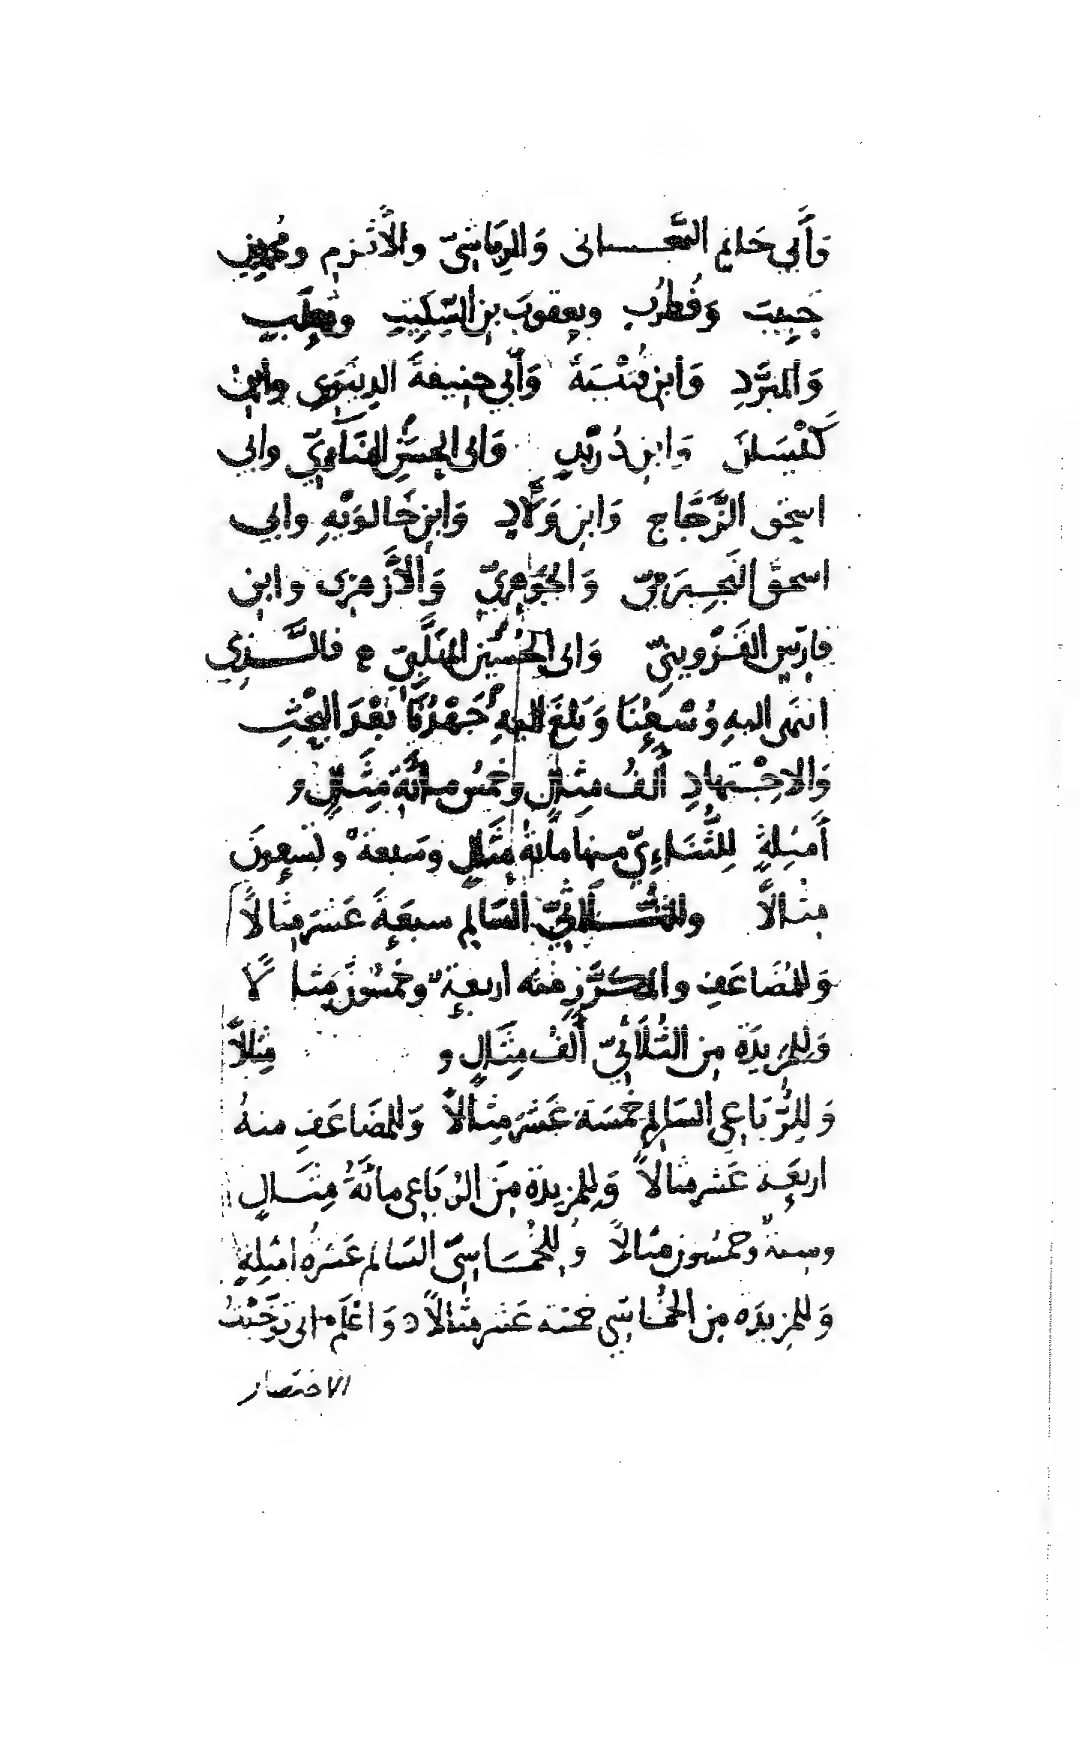 وَأَبي حَاتِمٍ السِّجِسْتَاني وَالرِّيَاشِيِّ والأَثْرَمِ ومُحمدِ بنِ
حَبيبَ وَقُطرُبٍ ويعقوبَ بنِ السِّكِّيتِ وثَعلَبٍ
وَالمبَرَّدِ وَابنِ قُتَيْبَةَ وَأَبي حَنِيفَةَ الدِّينَوَرِي وابن
كَيْسَانَ وَابنِ دُرَيْدٍ وَابي الحَسَنِ الهُنَاءِيِّ وابي
اسحق الزَّجَّاجِ وَابنِ وَلَّادٍ وَابنِ خَالوَيْهِ وابي
اسحق النَّجِيرَمِيِّ وَالجَوْهَرِيِّ وَالأَزهَرِي وابنِ
فارِسٍ القَزْوِينِيِّ وَابي الحُسَيْنِ المُهَلَّبِيِّ فالَّذِي
انتهى اليهِ وُسْعُنَا وَبَلغَ اليهِ جَهْدُنَا بَعْدَ البَحْثِ
وَالاجْتِهادِ أَلفُ مِثالٍ وخمسُ مائةِ مِثَالٍ و
أَمثِلةٍ لِلثُّنَاءِيِّ منها مائةُ مِثَالٍ وسَبعةٌ وتسعونَ
مثالاً وللثُّلَاثِيِّ السَّالِمِ سبعَةَ عَشَرَ مِثالاً
وَللمُضاعَفِ والمكَرَّرِ منه أربعةٌ وخمسُونَ مِثالاً
وَللمَزِيدَةِ مِن الثُّلَاثِيِّ أَلفُ مِثَالٍ و مِثالاً
وَللرُّبَاعِي السَّالِمِ خَمسَة عَشَرَ مِثَالاً وَللمُضَاعَفِ منهُ
اربعَة عَشر مثالاً وَللمَزيدةِ مِنَ الرُّبَاعِي مائةُ مِثَالٍ
وستةٌ وخمسُون مثالاً وَللخُمَاسِيِّ السَالمِ عَشَرةُ امثِلةٍ
وَللمزيدَه مِن الخُمَاسِي خمسَة عَشر مثالاً وَاعْلَم اني تَوَخَّيْتُ
الاختصار